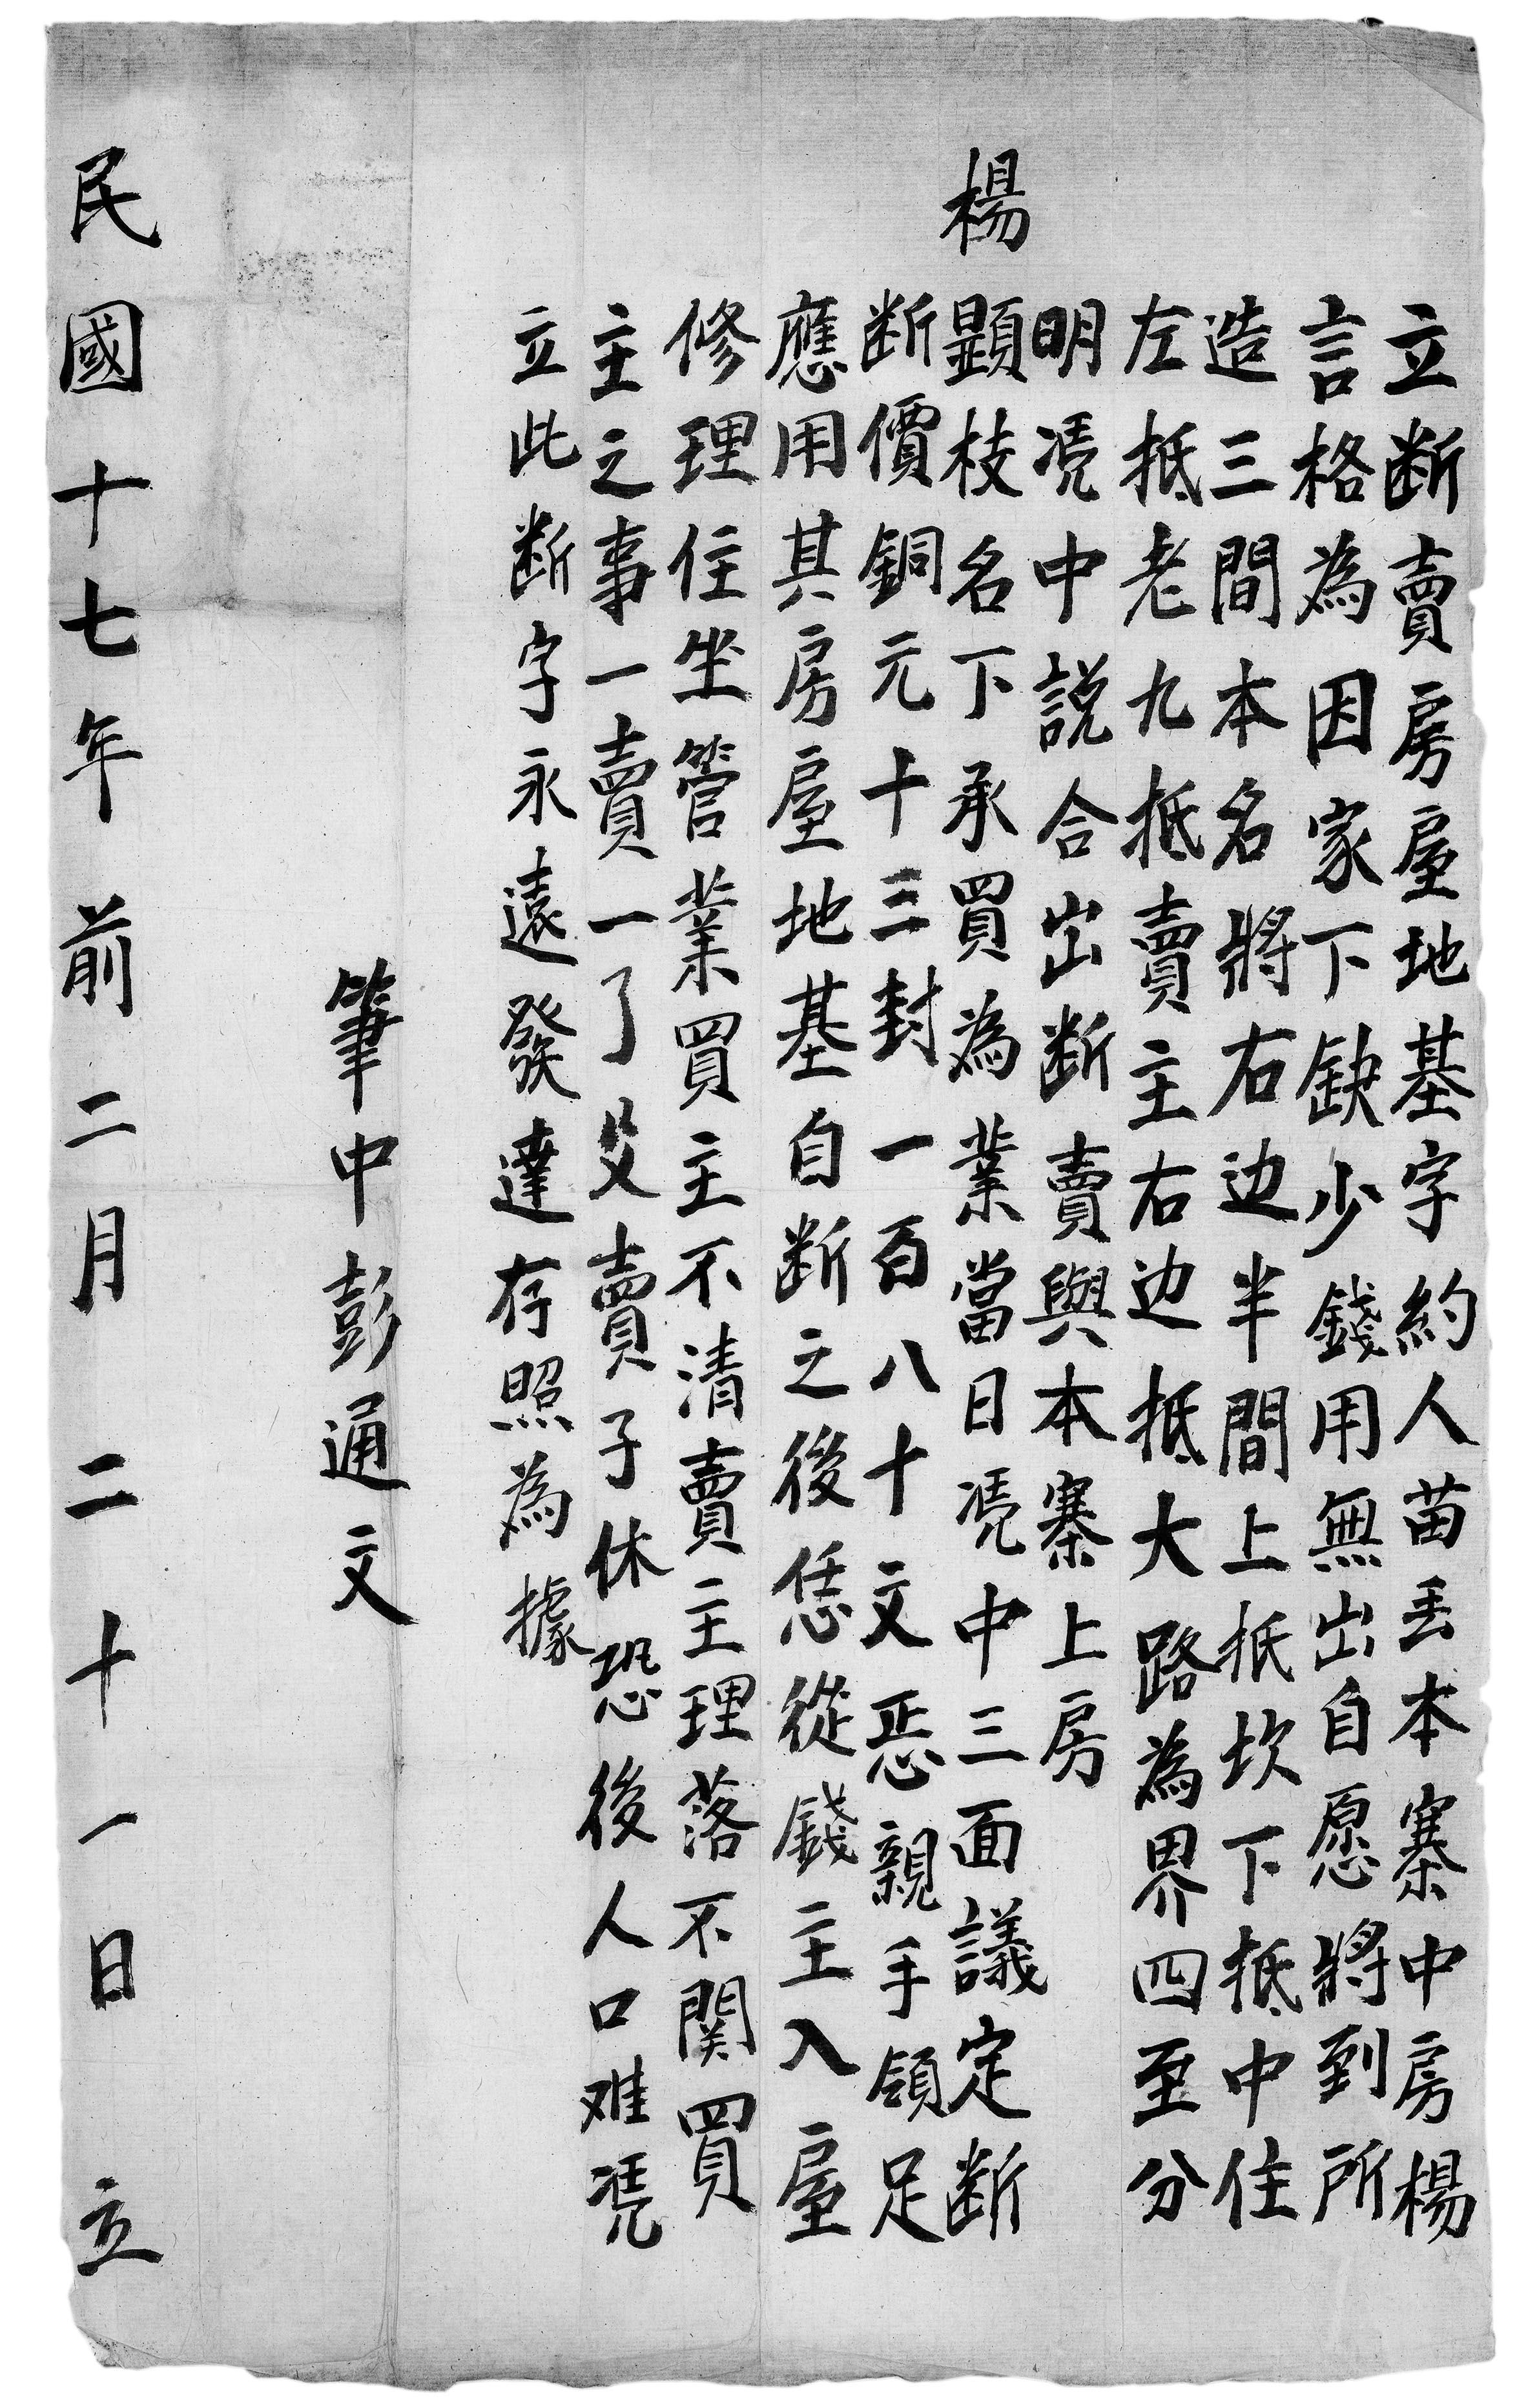 立断賣房屋地基字約人苗丢本寨中房楊
言格為因家下缺少錢用無出自愿將到所
造三間本名將右边半間上抵坎下抵中住
左抵老九抵賣主右边抵大路為界四至分
明凴中説合出断賣與本寨上房
楊顕枝名下承買為業當日凴中三面議定断
断價銅元十三封一百八十文恁親手領足
應用其房屋地基自断之後恁從錢主入屋
修理住坐管業買主不清賣主理落不関買
主之事一賣一了父賣子休恐後人口难凴
立此断字永遠發達存照為據
筆中彭通文
民國十七年前二月二十一日立